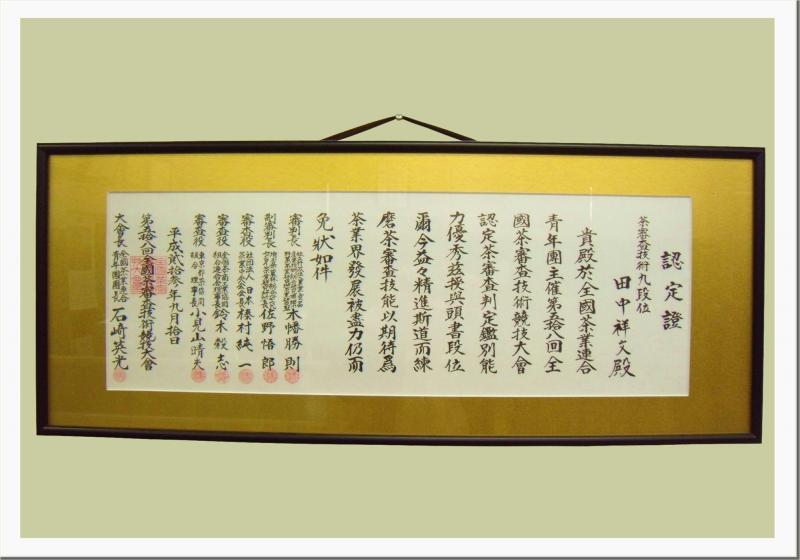 認定證
茶審査技術九段位
田中祥文殿
貴殿於全國茶業連合
青年團主催第五拾八回全
國茶審査技術競技大會
認定茶審査判定鑑別能
力優秀茲授與頭書段位
爾今益々精進斯道而練
磨茶審査技能以期待為
茶業界發展被盡力仍而
免状如件
審判長
木幡勝則
副審判長
佐野悟郎
審査役 社団法人 日本茶業中央会会長 榛村純一
審査役 鈴木毅志
審査役 小見山晴夫
平成貳拾参年九月拾日
第五拾八回全國茶審査技術競技大會
大會長 全國茶業連合青年團團長 石崎英光